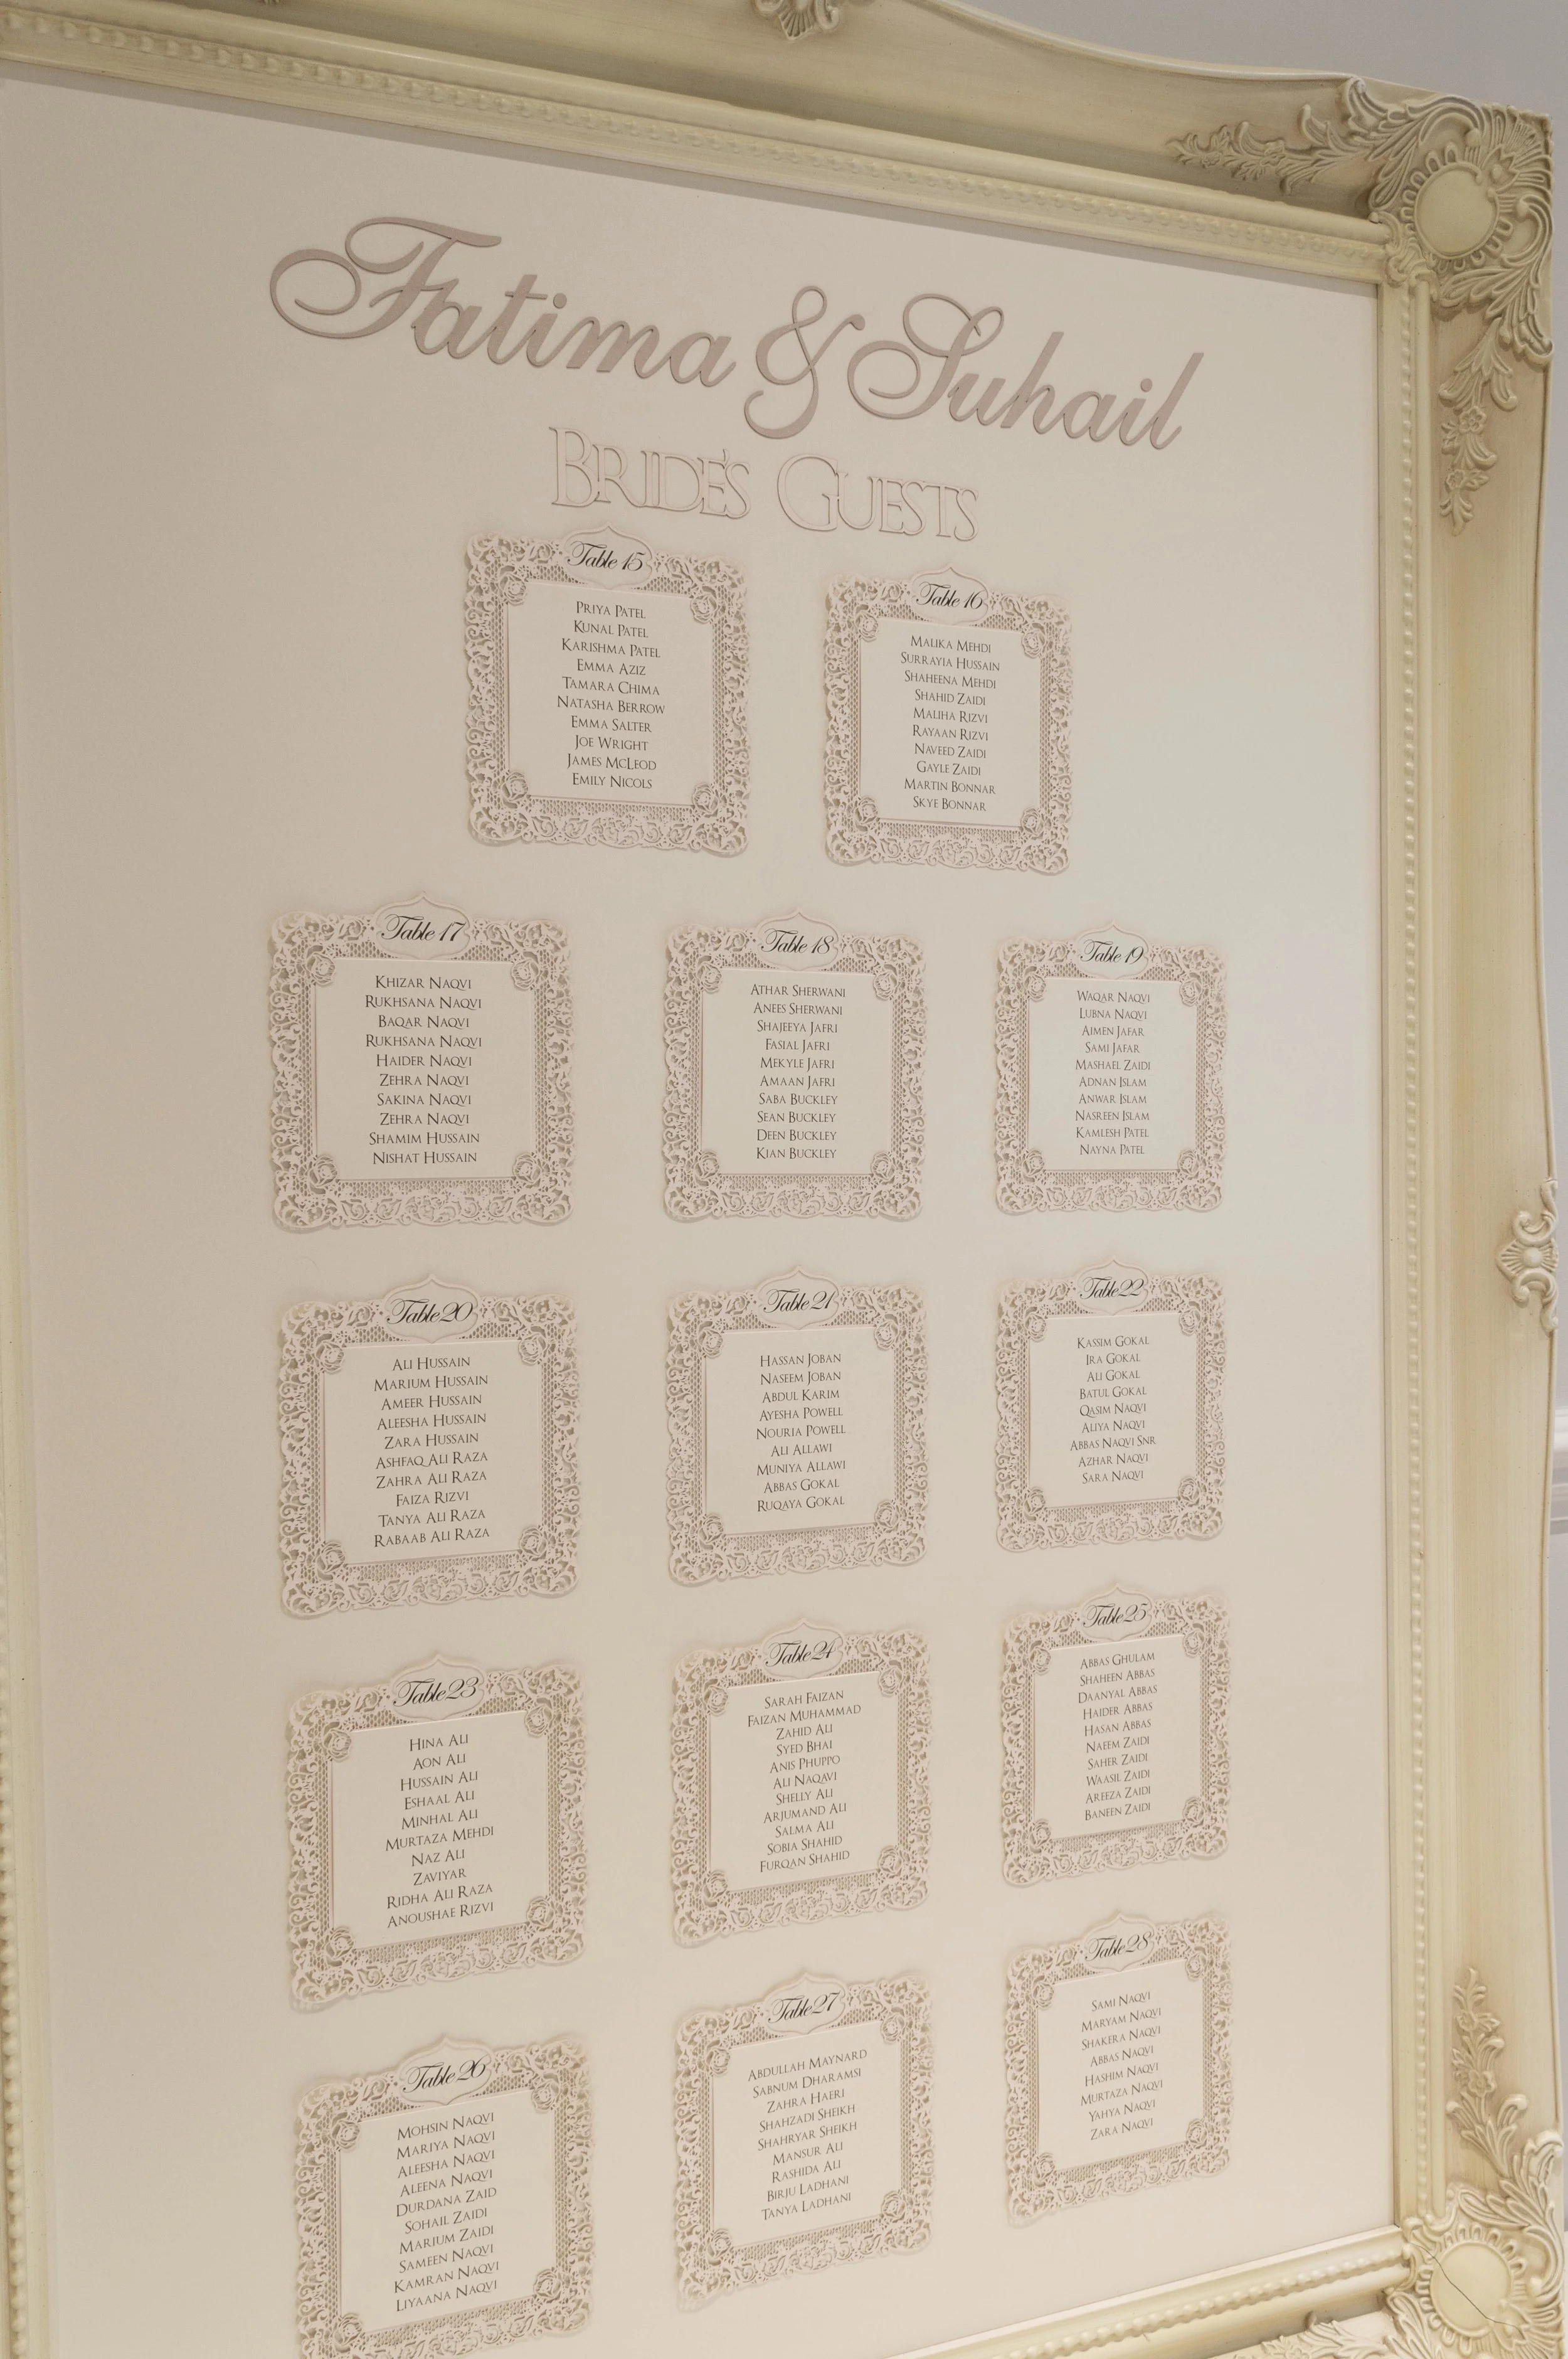 Fatima & Suhail
BRIDE'S GUESTS
Table 15
PRIYA PATEL
KUNAL PATEL
KARISHMA PATEL
EMMA AZIZ
TAMARA CHIMA
NATASHA BERROW
EMMA SALTER
JOE WRIGHT
JAMES MCLEOD
EMILY NICOLS
Table 16
MALIKA MEHDI
SURRAYIA HUSSAIN
SHAHEENA MEHDI
SHAHID ZAIDI
MALIHA RIZVI
RAYAAN RIZVI
NAVEED ZAIDI
GAYLE ZAIDI
MARTIN BONNAR
SKYE BONNAR
Table 17
KHIZAR NAQVI
RUKHSANA NAQVI
BAQAR NAQVI
RUKHSANA NAQVI
HAIDER NAQVI
ZEHRA NAQVI
SAKINA NAQVI
ZEHRA NAQVI
SHAMIM HUSSAIN
NISHAT HUSSAIN
Table 18
ATHAR SHERWANI
ANEES SHERWANI
SHAJEEYA JAFRI
FASIAL JAFRI
MEKYLE JAFRI
AMAAN JAFRI
SABA BUCKLEY
SEAN BUCKLEY
DEEN BUCKLEY
KIAN BUCKLEY
Table 19
WAQAR NAQVI
LUBNA NAQVI
AIMEN JAFAR
SAMI JAFAR
MASHAEL ZAIDI
ADNAN ISLAM
ANWAR ISLAM
NASREEN ISLAM
KAMLESH PATEL
NAYNA PATEL
Table 20
ALI HUSSAIN
MARIUM HUSSAIN
AMEER HUSSAIN
ALEESHA HUSSAIN
ZARA HUSSAIN
ASHFAQ ALI RAZA
ZAHRA ALI RAZA
FAIZA RIZVI
TANYA ALI RAZA
RABAAB ALI RAZA
Table 21
HASSAN JOBAN
NASEEM JOBAN
ABDUL KARIM
AYESHA POWELL
NOURIA POWELL
ALI ALLAWI
MUNIYA ALLAWI
ABBAS GOKAL
RUQAYA GOKAL
Table 22
KASSIM GOKAL
IRA GOKAL
ALI GOKAL
BATUL GOKAL
QASIM NAQVI
ALIYA NAQVI
ABBAS NAQVI SNR
AZHAR NAQVI
SARA NAQVI
Table 23
HINA ALI
AON ALI
HUSSAIN ALI
ESHAAL ALI
MINHAL ALI
MURTAZA MEHDI
NAZ ALI
ZAVIYAR
RIDHA ALI RAZA
ANOUSHAE RIZVI
Table 24
SARAH FAIZAN
FAIZAN MUHAMMAD
ZAHID ALI
SYED BHAI
ANIS PHUPPO
ALI NAQAVI
SHELLY ALI
ARJUMAND ALI
SALMA ALI
SOBIA SHAHID
FURQAN SHAHID
Table 25
ABBAS GHULAM
SHAHEEN ABBAS
DAANYAL ABBAS
HAIDER ABBAS
HASAN ABBAS
NAEEM ZAIDI
SAHER ZAIDI
WAASIL ZAIDI
AREEZA ZAIDI
BANEEN ZAIDI
Table 26
MOHSIN NAQVI
MARIYA NAQVI
ALEESHA NAQVI
ALEENA NAQVI
DURDANA ZAID
SOHAIL ZAIDI
MARIUM ZAIDI
SAMEEN NAQVI
KAMRAN NAQVI
LIYAANA NAQVI
Table 27
ABDULLAH MAYNARD
SABNUM DHARAMSI
ZAHRA HAERI
SHAHZADI SHEIKH
SHAHRYAR SHEIKH
MANSUR ALI
RASHIDA ALI
BIRJU LADHANI
TANYA LADHANI
Table 28
SAMI NAQVI
MARYAM NAQVI
SHAKERA NAQVI
ABBAS NAQVI
HASHIM NAQVI
MURTAZA NAQVI
YAHYA NAQVI
ZARA NAQVI